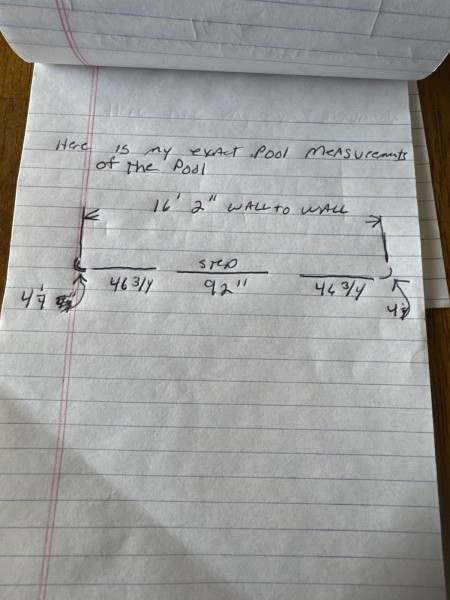 Here is my exact Pool Measurements
of the Pool
16' 2" WALL TO WALL
STEP
46 3/4 92" 46 3/4
4 1/4